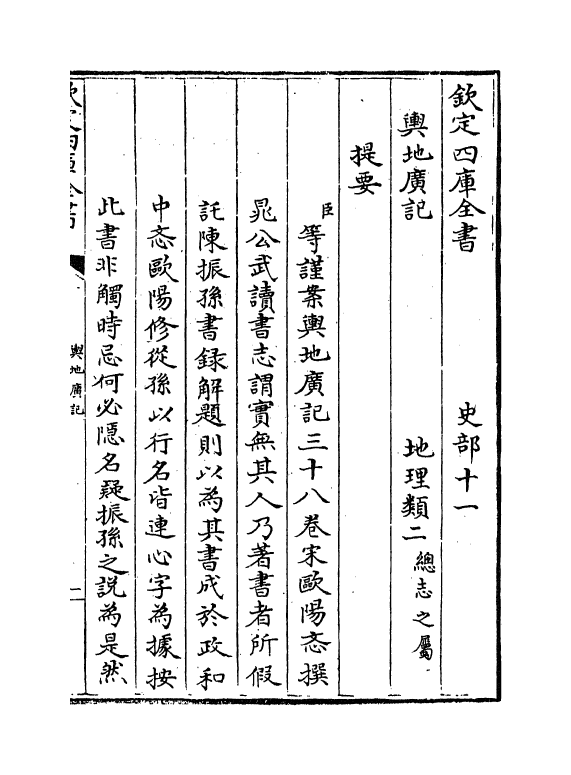 欽定四庫全書　史部十一
輿地廣記　地理類二總志之屬
提要
臣等謹案輿地廣記三十八卷宋歐陽忞撰
晁公武讀書志謂實無其人乃著書者所假
託陳振孫書録解題則以為其書成於政和
中忞歐陽修從孫以行名皆連心字為據按
此書非觸時忌何必隱名疑振孫之説為是然
輿地廣記
一